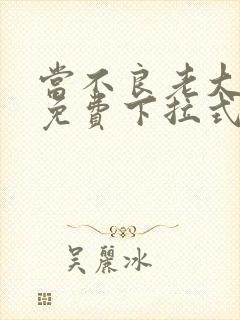 當不良老大
免費下拉式
吳麗冰